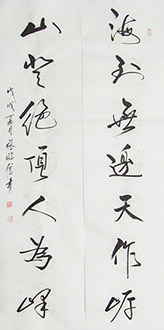 海到無邊天作岸
山登絕頂人為峰
戊戌